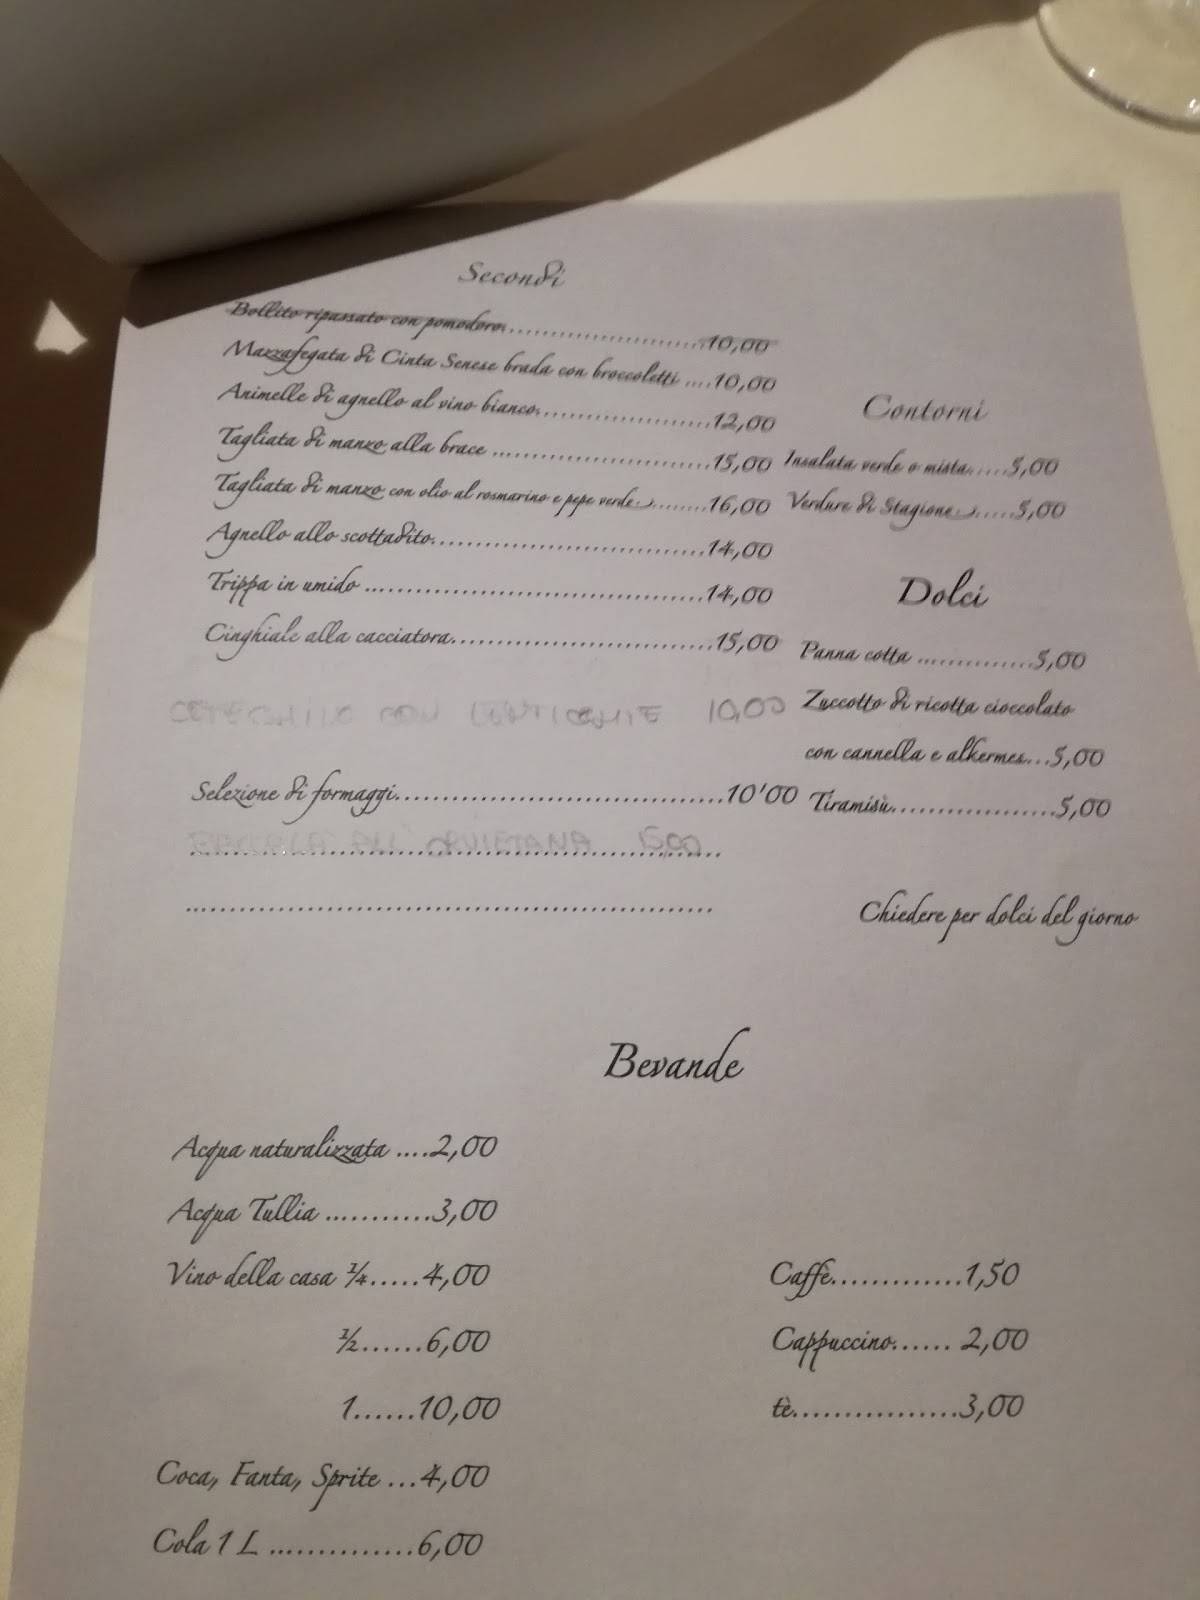 Secondi
Bollito ripassato con pomodoro...........................10,00
Mazzafegata di Cinta Senese brada con broccoletti ....10,00
Animelle di agnello al vino bianco......................12,00
Tagliata di manzo alla brace ..............................15,00
Tagliata di manzo con olio al rosmarino e pepe verde.........16,00
Agnello allo scottadito...................................14,00
Trippa in umido ...........................................14,00
Cinghiale alla cacciatora.................................15,00
CON LENTICCHIE 10,00
Selezione di formaggi......................................10'00
ORVIETANA
..............................................................
Contorni
Insalata verde o mista.....5,00
Verdure di Stagione......5,00
Dolci
Panna cotta ...............5,00
Zuccotto di ricotta cioccolato
con cannella e alkermes...5,00
Tiramisù...................5,00
Chiedere per dolci del giorno
Bevande
Acqua naturalizzata ....2,00
Acqua Tullia ...........3,00
Vino della casa ¼.....4,00
½......6,00
1......10,00
Coca, Fanta, Sprite ...4,00
Cola 1 L ..............6,00
Caffè.............1,50
Cappuccino...... 2,00
tè.................3,00